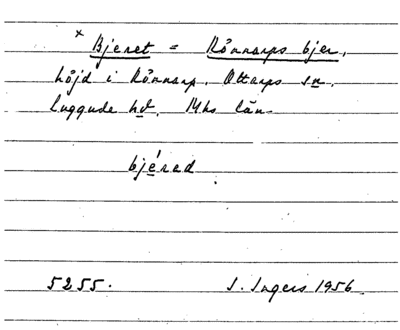 × Bjeret = Rönnarps bjer,
höjd i Rönnarp, Ottarps sn.
Luggude hd, Mhs län.
bjérad
5255. I. Ingers 1956.